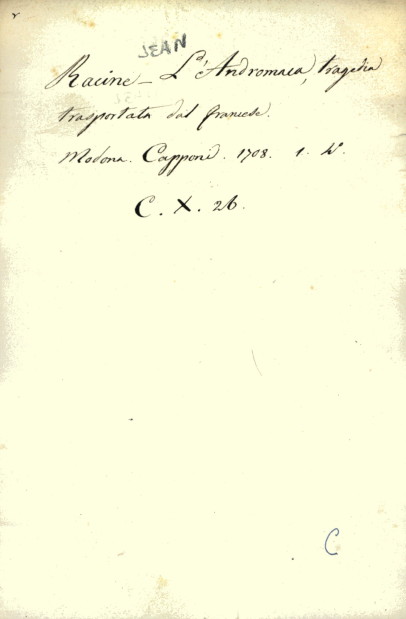 JEAN
Racine - L'Andromaca, tragedia
trasportata dal francese.
Modona. Capponi. 1708. 1. 4°.
C. X. 26.
C